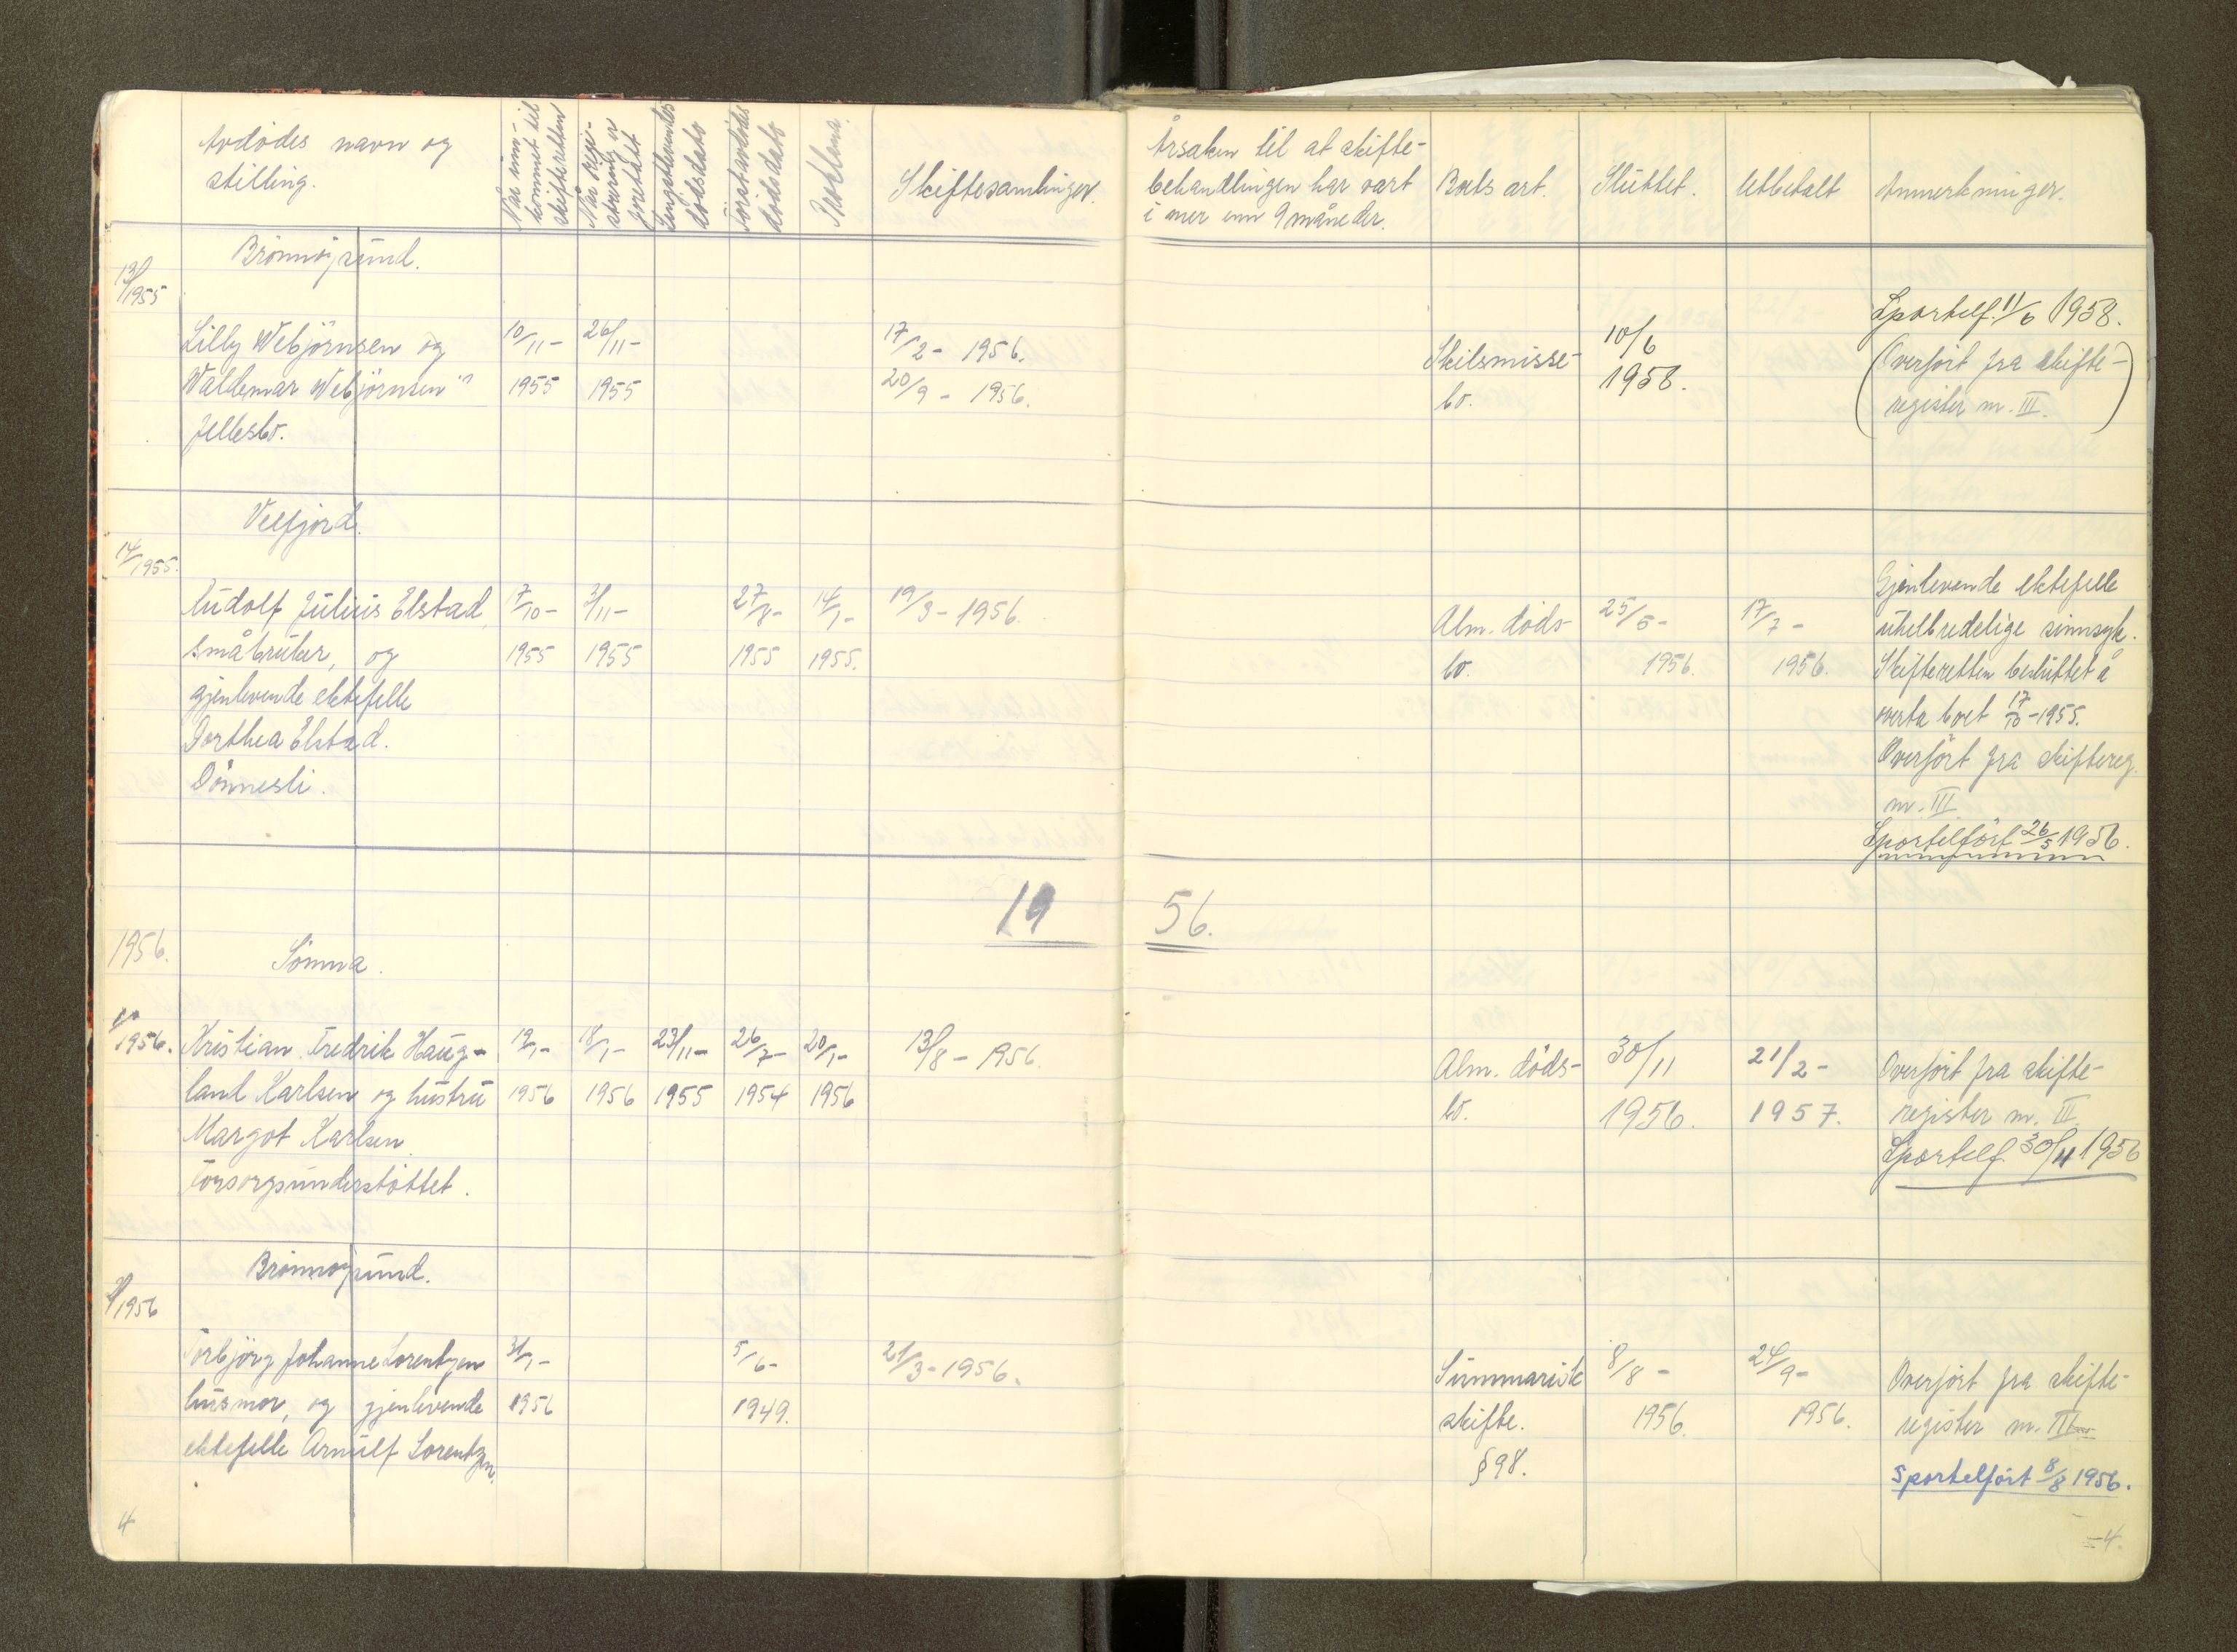 Avdödes navn og
stilling.
Når inn-
kommet til
skifteretten
Når regi-
strering er
foretatt
Lengstlevendes
dödsdato
Förstavdödes
dödsdato
Proklama.
Skiftesamlinger.
Årsaken til at skifte-
behandlingen har vart
i mer enn 9 måneder.
Boets art.
Sluttet.
Utbetalt
Anmerkninger.
Brönnöysund.
13/1955
Lilly Webjörnsen og
Waldemar Webjörnsen's
fellesbo.
10/11-
1955
26/11-
1955
17/2- 1956.
20/9 - 1956.
Skilsmisse-
bo.
10/6
1958.
Sportelf. 11/6 1958.
(Overfört fra skifte-
register nr. III.)
Velfjord.
14/1955.
Rudolf Julius Elstad,
småbruker, og
gjenlevende ektefelle
Dorthea Elstad.
Dönnesli.
17/10-
1955
3/11-
1955
27/8-
1955
14/1-
1955.
19/3- 1956.
Alm. döds-
bo.
25/5-
1956.
17/7-
1956.
Gjenlevende ektefelle
uhelbredelige sinnsyk.
Skifteretten besluttet å
overta boet 17/10-1955.
Overfört fra skiftereg.
nr. III
Sportelfört 26/5 1956.
19 56.
1956.
Sömna.
1956.
Kristian Fredrik Haug-
land Karlsen og hustru
Margot Karlsen.
Forsorgsunderstöttet.
12/1-
1956
18/1-
1956
23/11-
1955
26/7-
1954
20/1-
1956
13/8- 1956.
Alm. döds-
bo.
30/11
1956.
21/2-
1957.
Overfört fra skifte-
register nr. III
Sportelf. 30/11 1956
Brönnöysund.
2/1956
Torbjörg Johanne Lorentzen
husmor, og gjenlevende
ektefelle Arnulf Lorentzen.
31/1-
1956
5/6-
1949.
21/3- 1956.
Summarisk
skifte.
§ 98.
8/8 -
1956.
24/9-
1956.
Overfört fra skifte-
register nr. III
Sportelfört 8/8 1956.
4
-4.